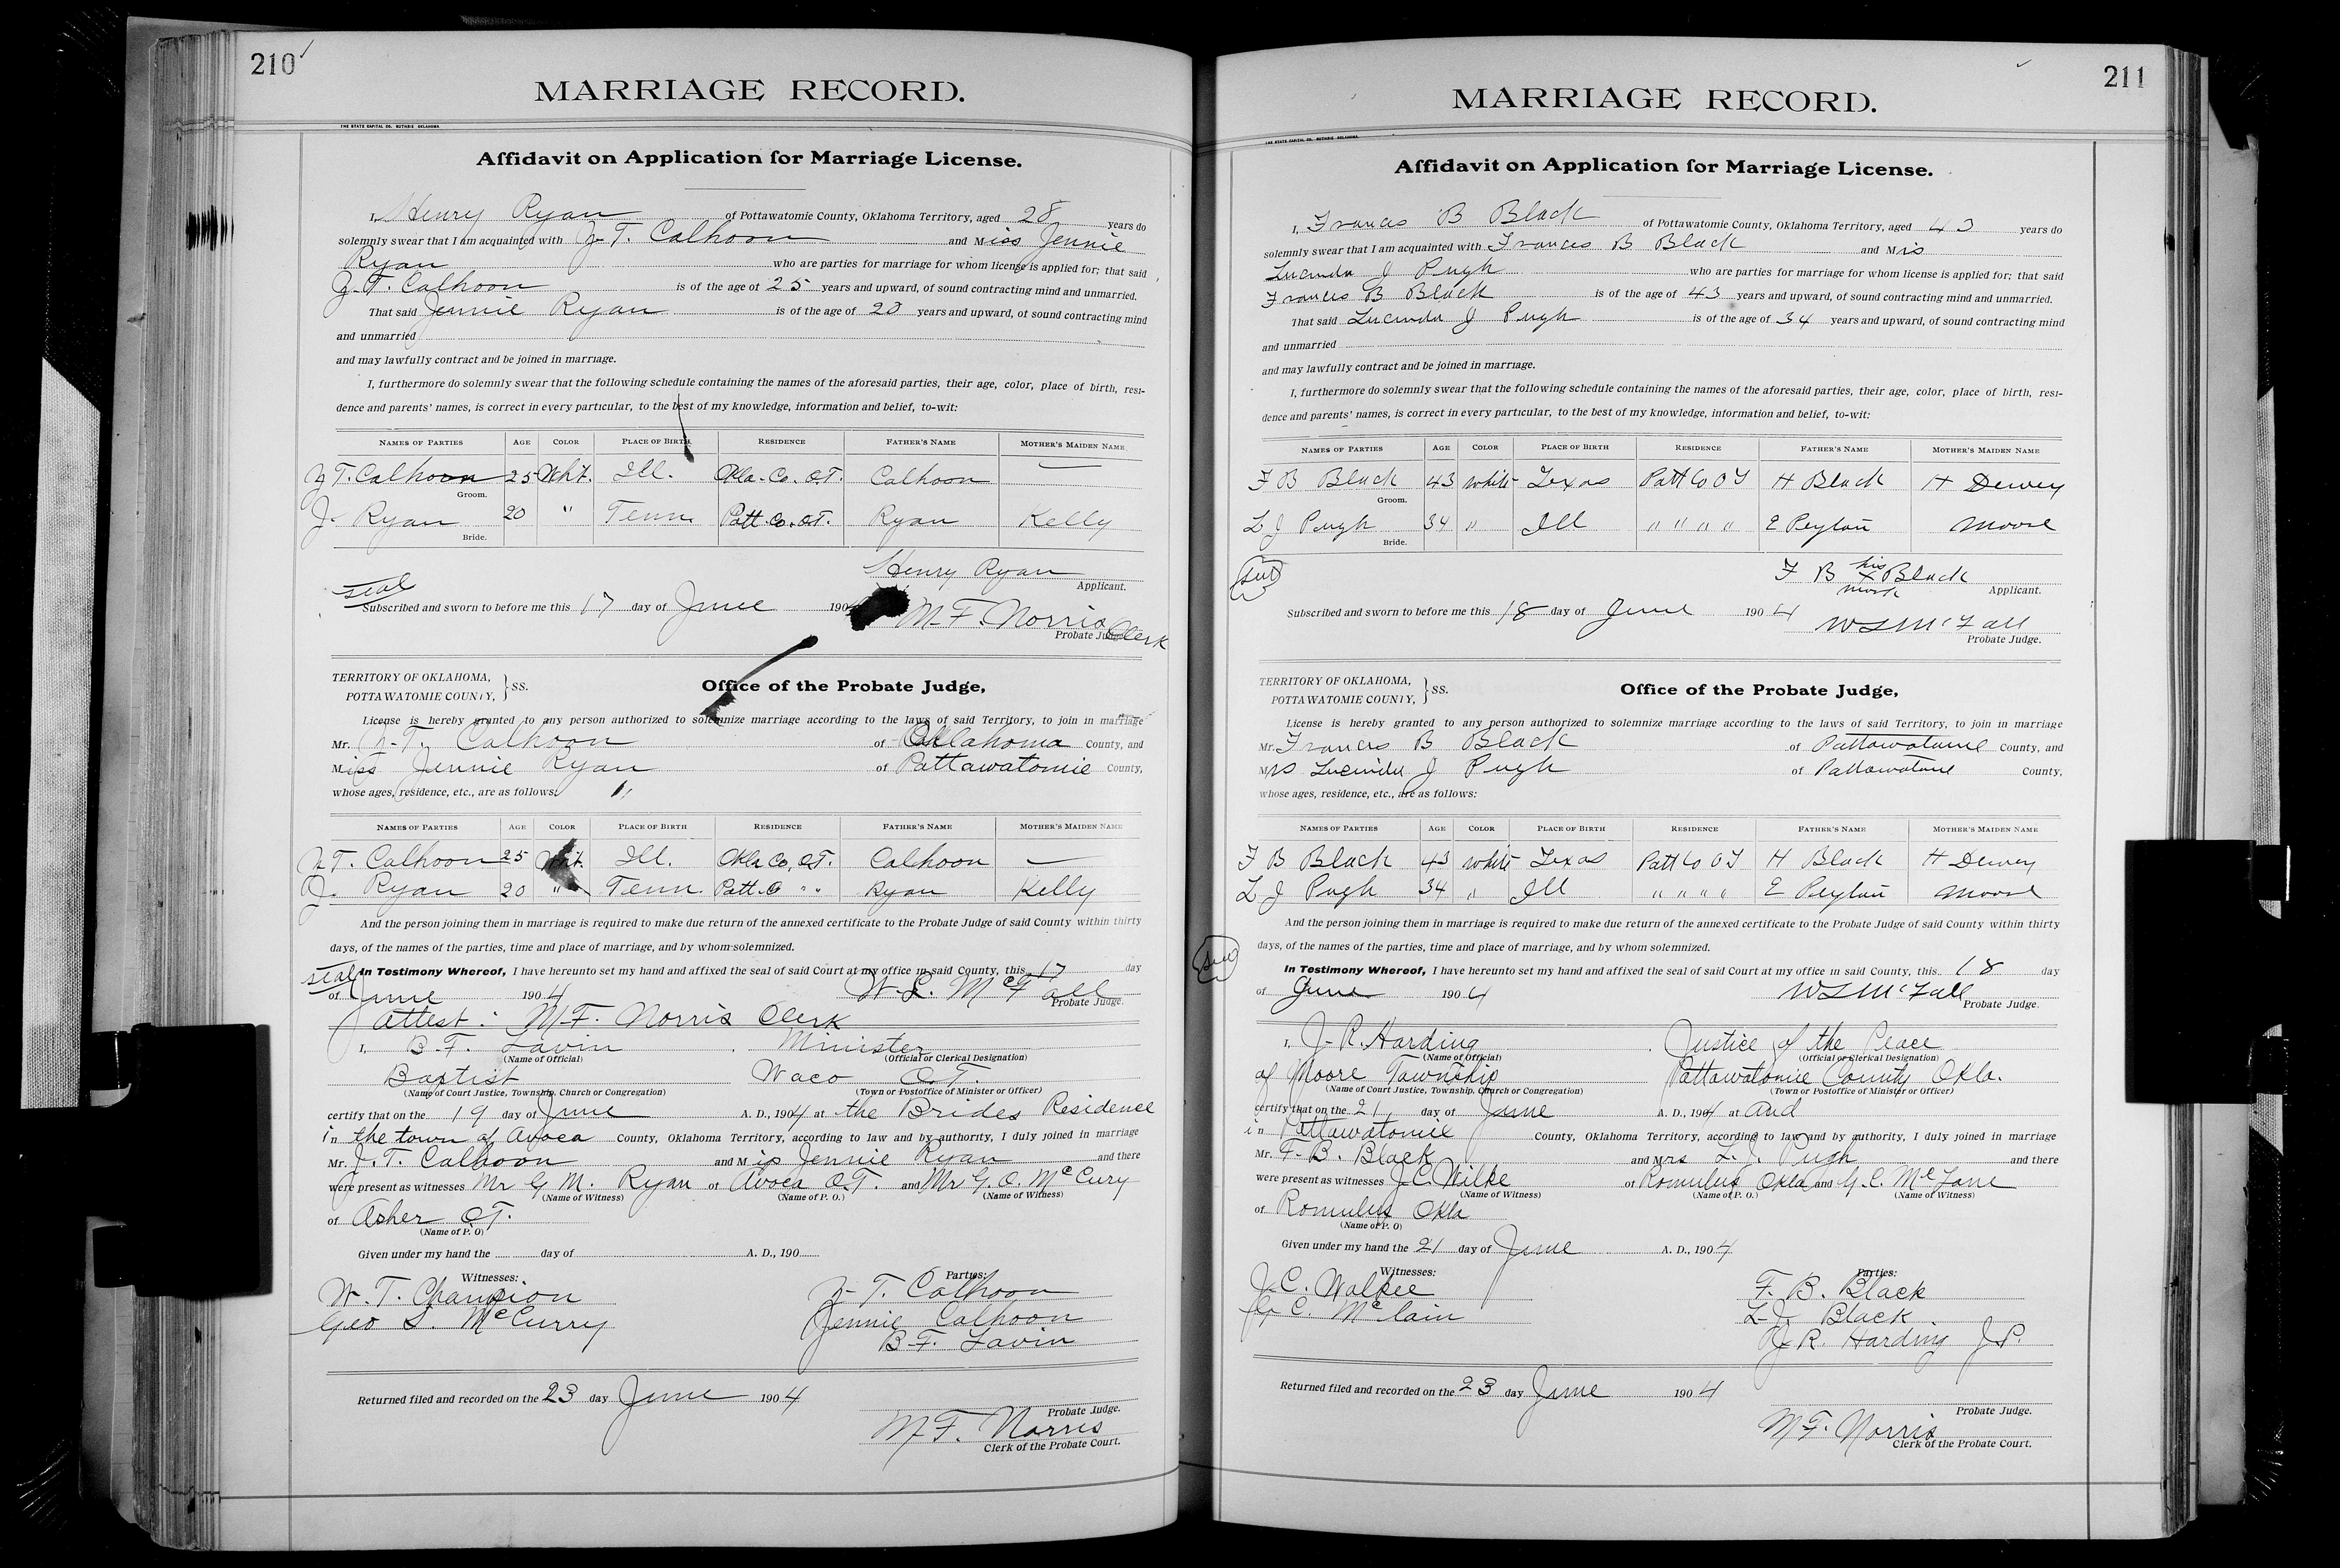 210
MARRIAGE RECORD.
THE STATE CAPITAL CO. GUTHRIE OKLAHOMA
Affidavit on Application for Marriage License.
I, Henry Ryan of Pottawatomie County, Oklahoma Territory, aged 28 years do
solemnly swear that I am acquainted with J. T. Calhoon and Miss Jennie
Ryan who are parties for marriage for whom license is applied for; that said
J. T. Calhoon is of the age of 25 years and upward, of sound contracting mind and unmarried.
That said Jennie Ryan is of the age of 20 years and upward, of sound contracting mind
and unmarried
and may lawfully contract and be joined in marriage.
I, furthermore do solemnly swear that the following schedule containing the names of the aforesaid parties, their age, color, place of birth, resi-
dence and parents' names, is correct in every particular, to the best of my knowledge, information and belief, to-wit:
NAMES OF PARTIES AGE COLOR PLACE OF BIRTH RESIDENCE FATHER'S NAME MOTHER'S MAIDEN NAME
J. T. Calhoon 25 Wht. Ill. Okla. Co. O.T. Calhoon —
Groom.
J. Ryan 20 " Tenn Pott. Co. O.T. Ryan Kelly
Bride.
Henry Ryan
Applicant.
seal
Subscribed and sworn to before me this 17 day of June 190
M. F. Norris Clerk
Probate Judge
TERRITORY OF OKLAHOMA,
POTTAWATOMIE COUNTY, } SS. Office of the Probate Judge,
License is hereby granted to any person authorized to solemnize marriage according to the laws of said Territory, to join in marriage
Mr. J. T. Calhoon of Oklahoma County, and
Miss Jennie Ryan of Pattawatomie County,
whose ages, residence, etc., are as follows:
NAMES OF PARTIES AGE COLOR PLACE OF BIRTH RESIDENCE FATHER'S NAME MOTHER'S MAIDEN NAME
J. T. Calhoon 25 Wht. Ill. Okla Co, O.T. Calhoon —
J. Ryan 20 " Tenn. Patt. Co " " Ryan Kelly
And the person joining them in marriage is required to make due return of the annexed certificate to the Probate Judge of said County within thirty
days, of the names of the parties, time and place of marriage, and by whom solemnized.
seal In Testimony Whereof, I have hereunto set my hand and affixed the seal of said Court at my office in said County, this 17 day
of June 1904 W. L. McFall
Probate Judge.
Attest: M. F. Norris Clerk
I, B. F. Lavin Minister
(Name of Official) (Official or Clerical Designation)
Baptist Waco O.T.
(Name of Court Justice, Township, Church or Congregation) (Town or Postoffice of Minister or Officer)
certify that on the 19 day of June A. D., 1904 at the Brides Residence
in the town of Avoca County, Oklahoma Territory, according to law and by authority, I duly joined in marriage
Mr. J. T. Calhoon and Miss Jennie Ryan and there
were present as witnesses Mr G. M. Ryan of Avoca O.T. and Mr G. O. McCury
(Name of Witness) (Name of P. O.) (Name of Witness)
of Asher O.T.
(Name of P. O)
Given under my hand the day of A. D., 190
Witnesses: Parties:
W. T. Champion J. T. Calhoon
Geo S. McCurry Jennie Calhoon
B. F. Lavin
Returned filed and recorded on the 23 day June 1904
Probate Judge.
M. F. Norris
Clerk of the Probate Court.
211
MARRIAGE RECORD.
THE STATE CAPITAL CO. GUTHRIE OKLAHOMA
Affidavit on Application for Marriage License.
I, Frances B Black of Pottawatomie County, Oklahoma Territory, aged 43 years do
solemnly swear that I am acquainted with Frances B Black and Mris
Lucinda J Pugh who are parties for marriage for whom license is applied for; that said
Frances B Black is of the age of 43 years and upward, of sound contracting mind and unmarried.
That said Lucinda J Pugh is of the age of 34 years and upward, of sound contracting mind
and unmarried
and may lawfully contract and be joined in marriage.
I, furthermore do solemnly swear that the following schedule containing the names of the aforesaid parties, their age, color, place of birth, resi-
dence and parents' names, is correct in every particular, to the best of my knowledge, information and belief, to-wit:
NAMES OF PARTIES AGE COLOR PLACE OF BIRTH RESIDENCE FATHER'S NAME MOTHER'S MAIDEN NAME
F B Black 43 white Texas Patt Co O T H Black H Dewey
Groom.
L J Pugh 34 " Ill " " " " E Peyton Moore
Bride.
seal
F B his x mark Black
Applicant.
Subscribed and sworn to before me this 18 day of June 1904
W L McFall
Probate Judge.
TERRITORY OF OKLAHOMA,
POTTAWATOMIE COUNTY, } SS. Office of the Probate Judge,
License is hereby granted to any person authorized to solemnize marriage according to the laws of said Territory, to join in marriage
Mr. Frances B Black of Pattawatomie County, and
Mrs Lucinda J Pugh of Pattawatomie County,
whose ages, residence, etc., are as follows:
NAMES OF PARTIES AGE COLOR PLACE OF BIRTH RESIDENCE FATHER'S NAME MOTHER'S MAIDEN NAME
F B Black 43 white Texas Patt Co O T H Black H Dewey
L J Pugh 34 " Ill " " " " E Peyton Moore
And the person joining them in marriage is required to make due return of the annexed certificate to the Probate Judge of said County within thirty
days, of the names of the parties, time and place of marriage, and by whom solemnized.
seal In Testimony Whereof, I have hereunto set my hand and affixed the seal of said Court at my office in said County, this 18 day
of June 1904 W L McFall
Probate Judge.
I, J. R. Harding Justice of the Peace
(Name of Official) (Official or Clerical Designation)
of Moore Township Pattawatomie County Okla.
(Name of Court Justice, Township, Church or Congregation) (Town or Postoffice of Minister or Officer)
certify that on the 21 day of June A. D., 1904 at and
in Pattawatomie County, Oklahoma Territory, according to law and by authority, I duly joined in marriage
Mr. F. B. Black and Mrs L. J. Pugh and there
were present as witnesses J. C. Wilke of Romulus Okla and G. C. McLane
(Name of Witness) (Name of P. O.) (Name of Witness)
of Romulus Okla
(Name of P. O)
Given under my hand the 21 day of June A. D., 1904
Witnesses: Parties:
J. C. Walkee F. B. Black
G. C. McClain L. J. Black
J. R. Harding J. P.
Returned filed and recorded on the 23 day June 1904
Probate Judge.
M. F. Norris
Clerk of the Probate Court.